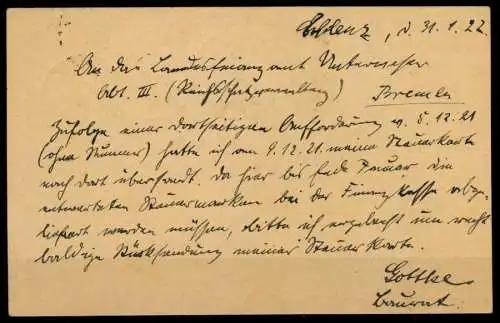 Eldena, d. 31.1.22
An das Landesfinanzamt Unterweser
Abt. III. (Reichsschatzverwaltung) Bremen
Zufolge einer dortseitigen Aufforderung v. 5.12.21
(ohne Nummer) hatte ich am 9.12.21 meine Steuerkarte
nach dort übersandt. Da hier bis Ende Januar die
entwerteten Steuermarken bei der Finanzkasse abge-
liefert werden müssen, bitte ich ergebenst um recht
baldige Rücksendung meiner Steuerkarte.
Gottke
Baurat.